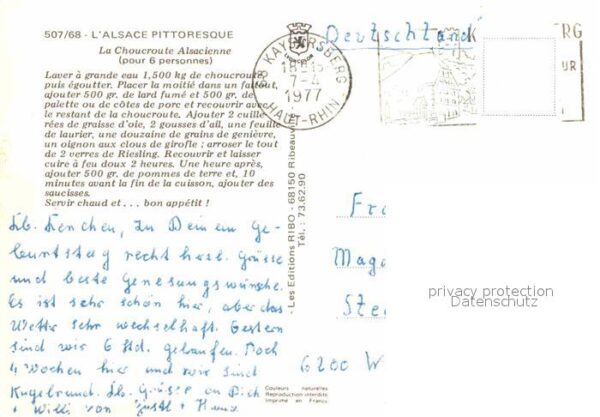 507/68 - L'ALSACE PITTORESQUE
La Choucroute Alsacienne
(pour 6 personnes)
Laver à grande eau 1,500 kg de choucroute
puis égoutter. Placer la moitié dans un faitout,
ajouter 500 gr. de lard fumé et 500 gr. de
palette ou de côtes de porc et recouvrir avec
le restant de la choucroute. Ajouter 2 cuille
rées de graisse d'oie, 2 gousses d'ail, une feuille
de laurier, une douzaine de grains de genièvre,
un oignon aux clous de girofle ; arroser le tout
de 2 verres de Riesling. Recouvrir et laisser
cuire à feu doux 2 heures. Une heure après,
ajouter 500 gr. de pommes de terre et, 10
minutes avant la fin de la cuisson, ajouter des
saucisses.
Servir chaud et . . . bon appétit !
Lb. Lenchen, zu Deinem Ge-
burtstag recht herzl. Grüsse
und beste Genesungswünsche.
Es ist sehr schön hier, aber das
Wetter sehr wechselhaft. Gestern
sind wir 6 Std. gelaufen. Noch
4 Wochen hier und wir sind
Kugelrund. Lb. Grüsse an Dich
+ Willi von Gustl +
- Les Editions RIBO - 68150 Ribeauv
Tél. : 73.62.90
Couleurs naturelles
Reproduction interdite
Imprimé en France
Deutschland
68 KAYSERSBERG
18H15
7-4
1977
HAUT-RHIN
RG
UR
Fr
Mag
Ste
6200 W
privacy protection
Datenschutz